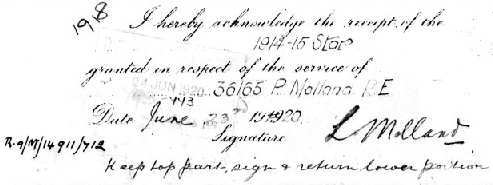 198
I hereby acknowledge the receipt of the
1914-15 Star
granted in respect of the service of
36165 P. Molland R.E
Date June 23rd 1920.
Signature L Molland
R.9/M/14911/712
Keep top part, sign & return lower portion